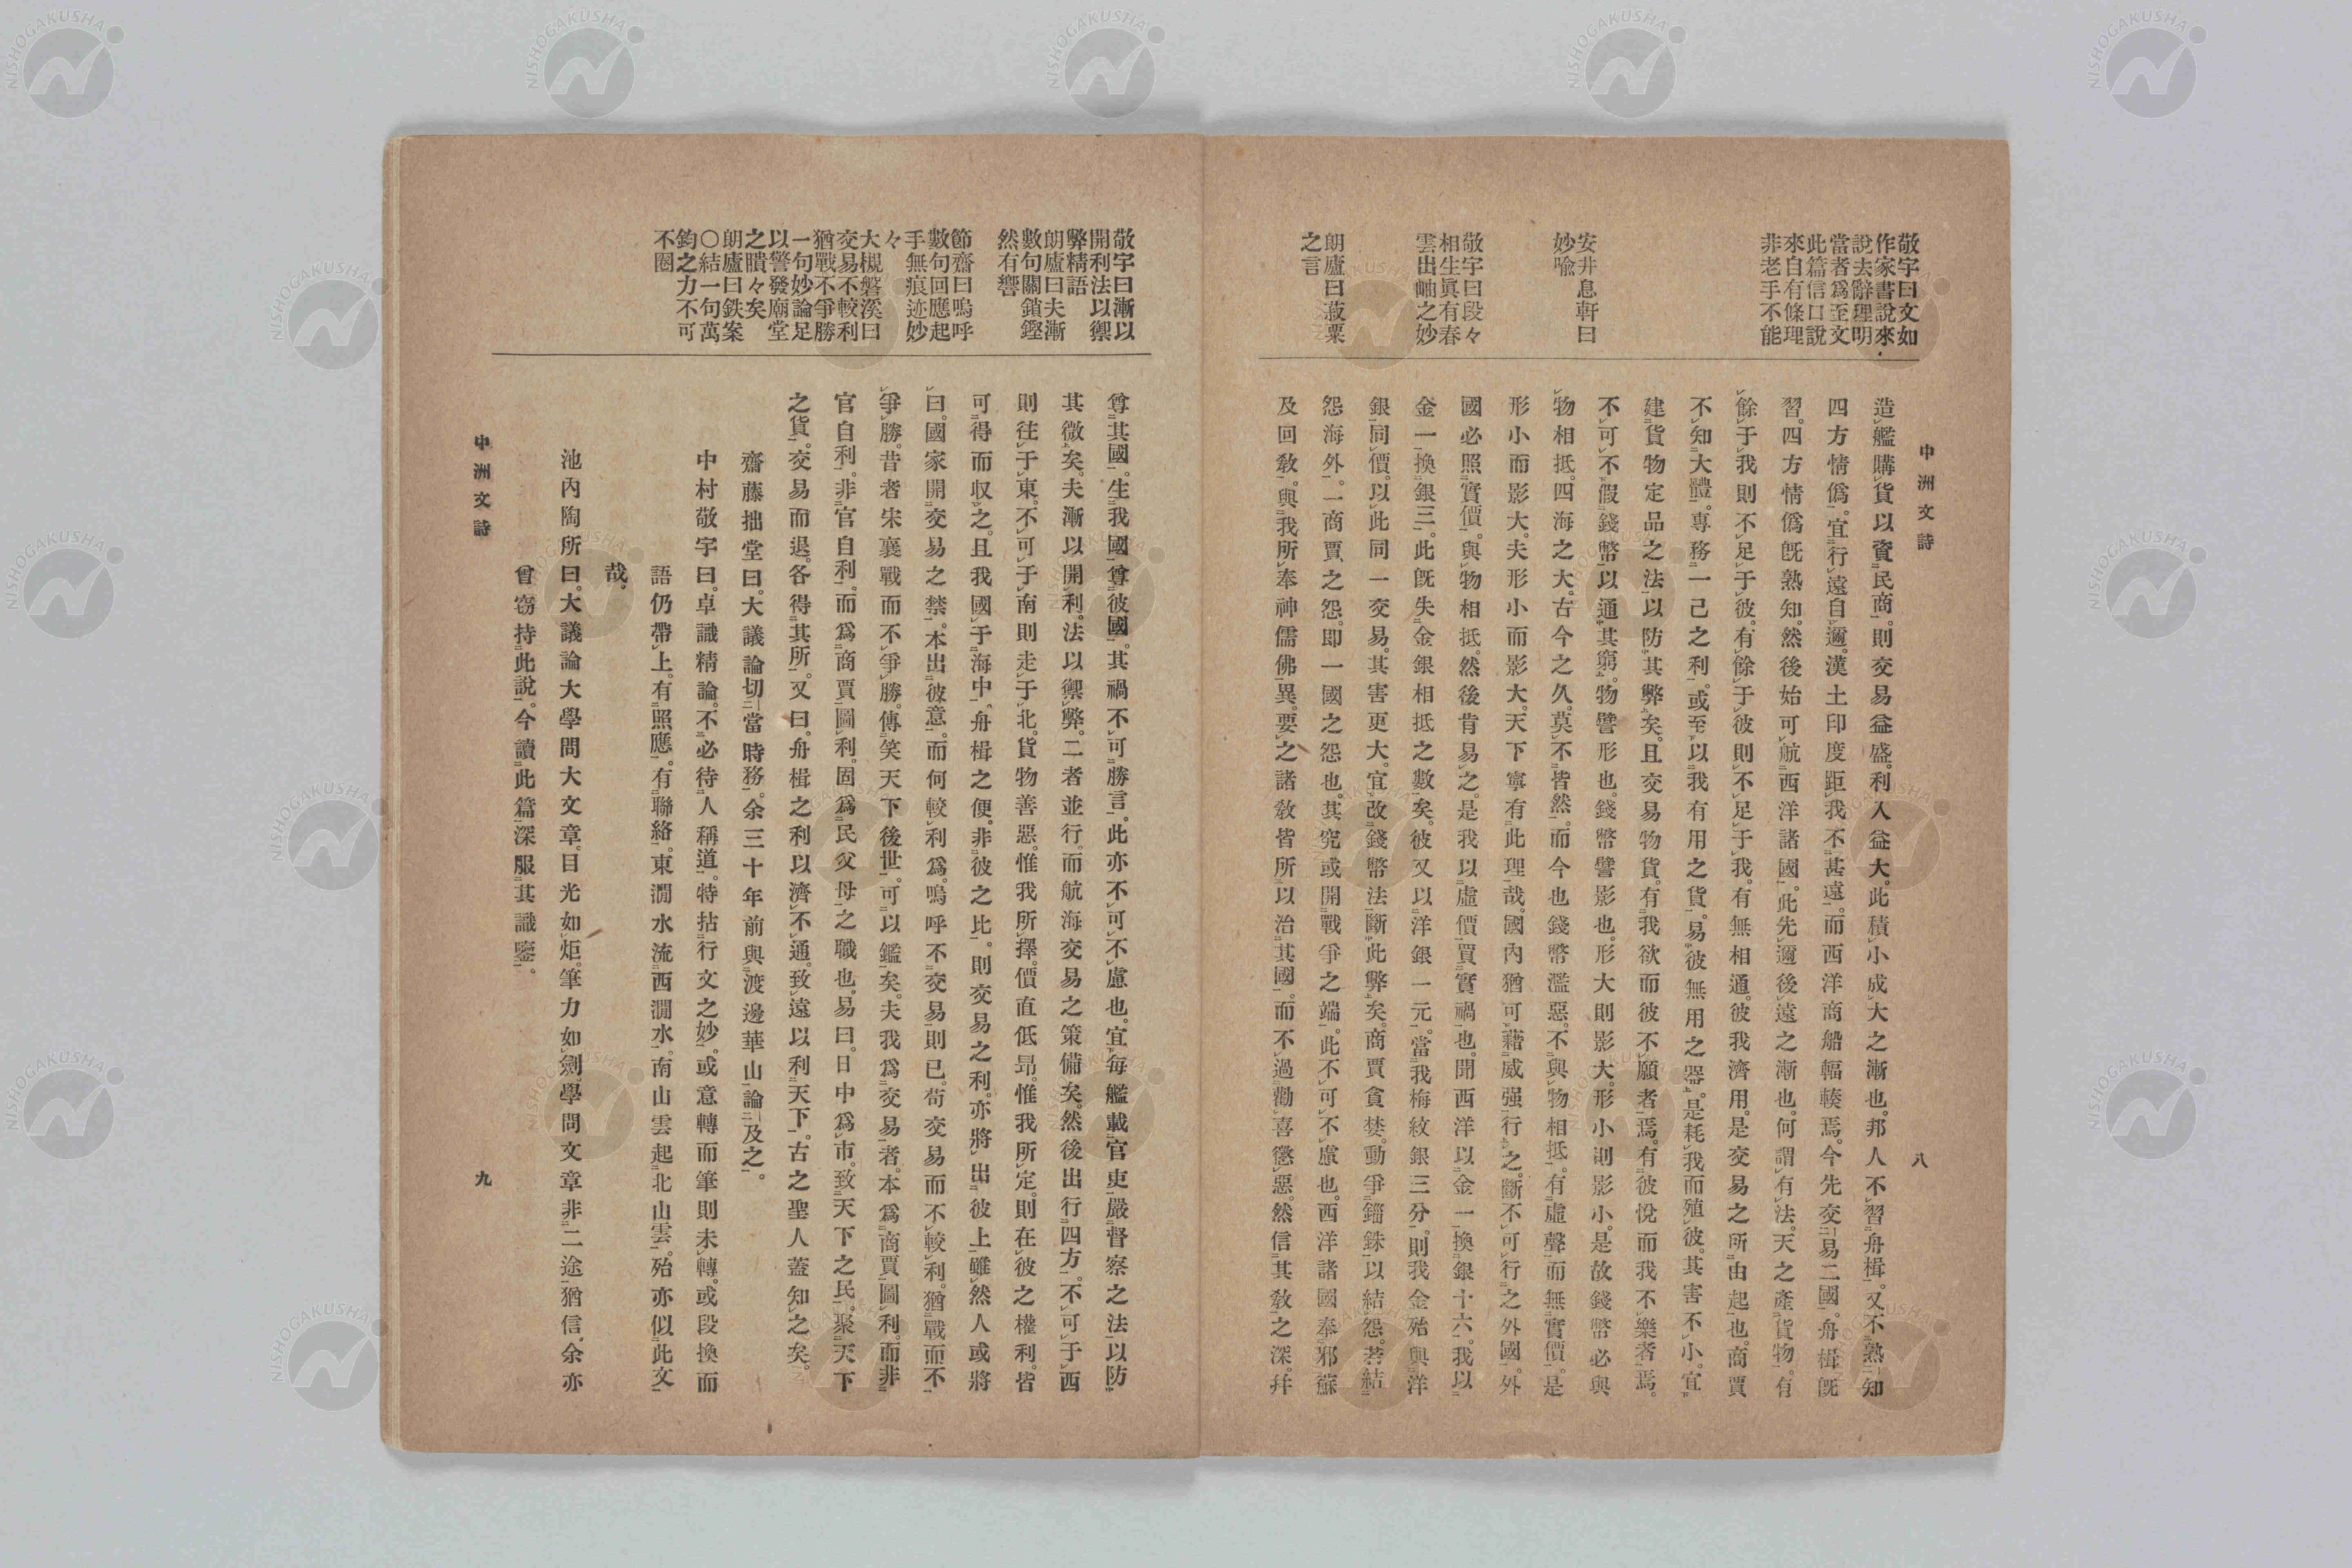 中洲文詩
八
敬宇曰文如
作家書說來
說去辭理明
當者爲至文
此篇信口說
來自有條理
非老手不能
安井息軒曰
妙喩
敬宇曰段々
相生眞有春
雲出岫之妙
朗廬曰菽粟
之言
造艦購貨以資民商。則交易益盛。利入益大。此積小成大之漸也。邦人不習舟楫。又不熟知
四方情僞。宜行遠自邇。漢土印度距我不甚遠。而西洋商船輻輳焉。今先交易二國。舟楫旣
習。四方情僞旣熟知。然後始可航西洋諸國。此先邇後遠之漸也。何謂有法。天之產貨物。有
餘于我則不足于彼。有餘于彼則不足于我。有無相通。彼我濟用。是交易之所由起也。商賈
不知大體。專務一己之利。或至以我有用之貨。易彼無用之器。是耗我而殖彼。其害不小。宜
建貨物定品之法以防其弊矣。且交易物貨。有我欲而彼不願者焉。有彼悅而我不樂者焉。
不可不假錢幣以通其窮。物譬形也。錢幣譬影也。形大則影大。形小則影小。是故錢幣必與
物相抵。四海之大。古今之久。莫不皆然。而今也錢幣濫惡。不與物相抵。有虛聲而無實價。是
形小而影大。夫形小而影大。天下寧有此理哉。國內猶可藉威强行之。斷不可行之外國。外
國必照實價。與物相抵。然後肯易之。是我以虛價買實禍也。聞西洋以金一換銀十六。我以
金一換銀三。此旣失金銀相抵之數矣。彼又以洋銀一元。當我梅紋銀三分。則我金殆與洋
銀同價。以此同一交易。其害更大。宜改錢幣法斷此弊矣。商賈貪婪。動爭錙銖以結怨。若結
怨海外。一商賈之怨。卽一國之怨也。其究或開戰爭之端。此不可不慮也。西洋諸國奉邪蘇
及回敎。與我所奉神儒佛異。要之諸敎皆所以治其國。而不過勸喜懲惡。然信其敎之深。幷
敬宇曰漸以
開利法以禦
弊精語
朗廬曰夫漸
數句關鎖鏗
然有響
節齋曰嗚呼
數句回應起
手無痕迹妙
々
大槻磐溪曰
交易不較利
猶戰不爭勝
一句妙論足
以警發廟堂
之聵々矣
朗廬曰鉄案
〇結一句萬
鈞之力不可
不圈
尊其國。生我國尊彼國。其禍不可勝言。此亦不可不慮也。宜每艦載官吏嚴督察之法以防
其微矣。夫漸以開利。法以禦弊。二者並行。而航海交易之策備矣。然後出行四方。不可于西
則往于東。不可于南則走于北。貨物善惡。惟我所擇。價直低昂。惟我所定。則在彼之權利。皆
可得而収之。且我國于海中。舟楫之便。非彼之比。則交易之利。亦將出彼上。雖然人或將
曰。國家開交易之禁。本出彼意。而何較利爲。嗚呼不交易則已。苟交易而不較利。猶戰而不
爭勝。昔者宋襄戰而不爭勝。傳笑天下後世。可以鑑矣。夫我爲交易者。本爲商賈圖利。而非
官自利。非官自利。而爲商賈圖利。固爲民父母之職也。易曰。日中爲市。致天下之民。聚天下
之貨。交易而退。各得其所。又曰。舟楫之利以濟不通。致遠以利天下。古之聖人蓋知之矣。
齋藤拙堂曰。大議論切當時務。余三十年前與渡邊華山論及之。
中村敬宇曰。卓識精論。不必待人稱道。特拈行文之妙。或意轉而筆則未轉。或段換而
語仍帶上。有照應。有聯絡。東澗水流西澗水。南山雲起北山雲。殆亦似此文
哉。
池內陶所曰。大議論大學問大文章。目光如炬。筆力如劍。學問文章非二途猶信。余亦
曾窃持此說。今讀此篇深服其識鑒。
中洲文詩
九